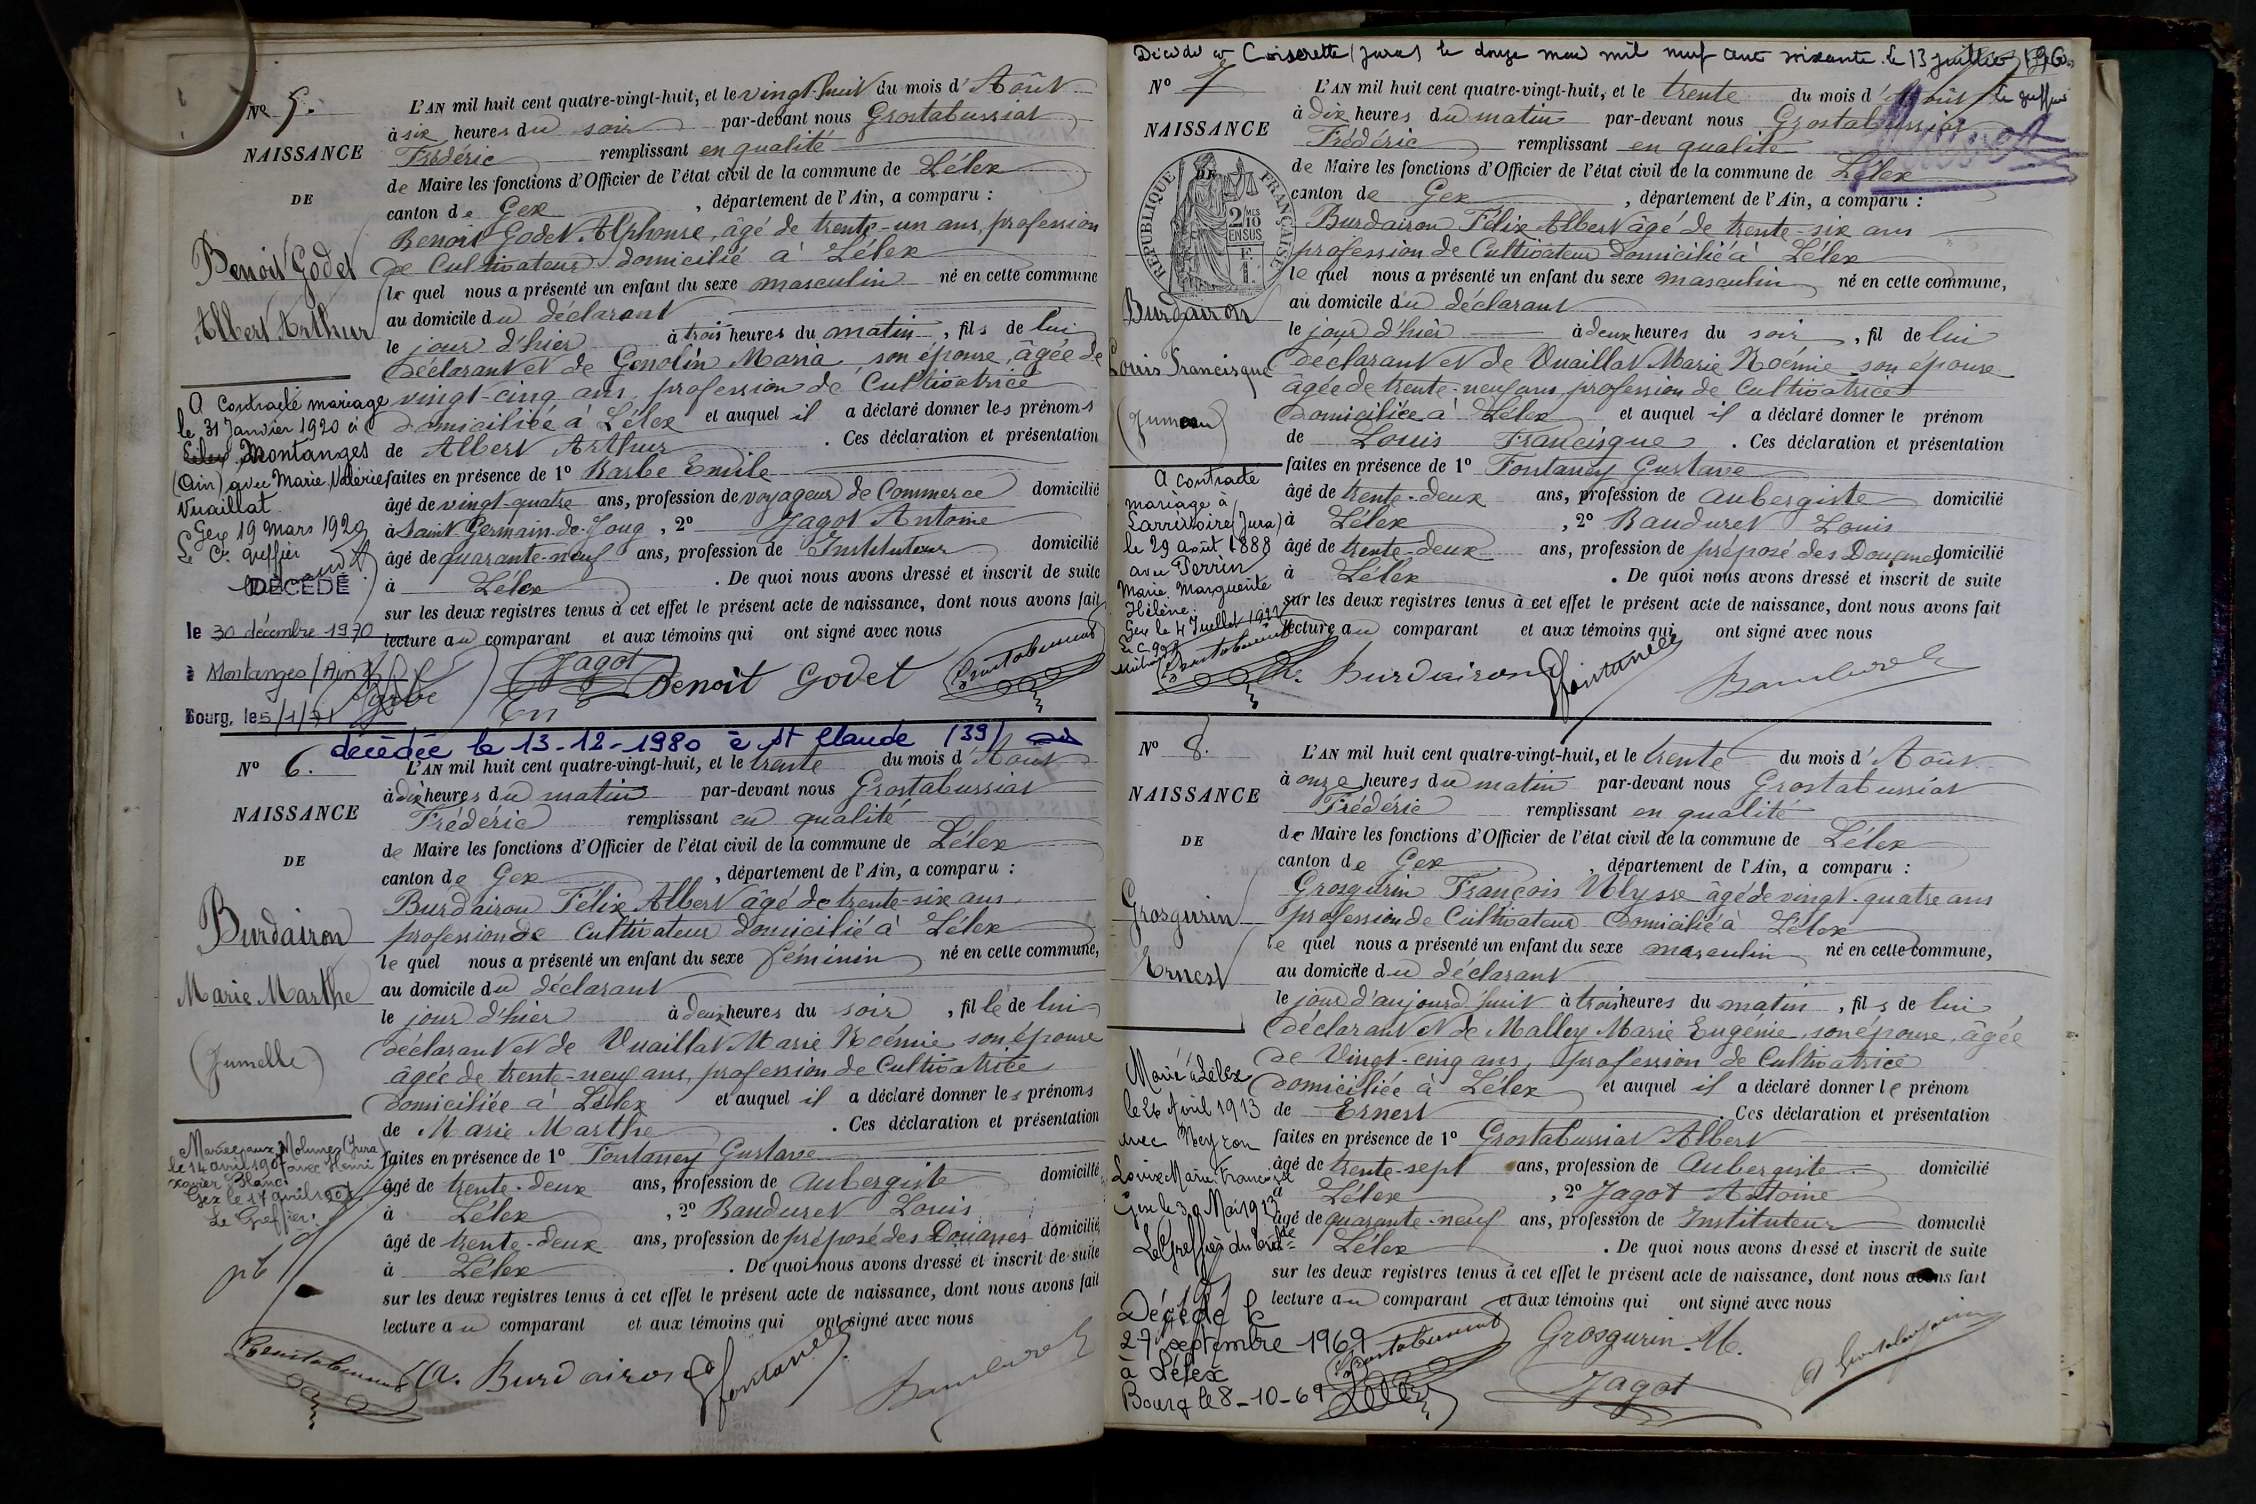 N° 5.
NAISSANCE
DE
Benoit Godet
Albert Arthur
A contracté mariage
le 31 Janvier 1920 à
Montanges
(Ain) avec Marie Valérie
Vuaillat
Gex 19 mars 1920
Le C. greffier
DÉCÉDÉ
le 30 décembre 1970
à Montanges (Ain)
Bourg, le 5/1/71
L'AN mil huit cent quatre-vingt-huit, et le vingt-huit du mois d'Août
à six heures du soir par-devant nous Grostabussiat
Frédéric remplissant en qualité
de Maire les fonctions d'Officier de l'état civil de la commune de Lélex
canton de Gex, département de l'Ain, a comparu :
Benoit Godet Alphonse, âgé de trente-un ans, profession
de Cultivateur domicilié à Lélex
lequel nous a présenté un enfant du sexe masculin né en cette commune
au domicile du déclarant
le jour d'hier à trois heures du matin, fils de lui
déclarant et de Gonolin Maria, son épouse, âgée de
vingt-cinq ans, profession de Cultivatrice
domiciliée à Lélex et auquel il a déclaré donner les prénoms
de Albert Arthur. Ces déclaration et présentation
faites en présence de 1° Barbe Emile
âgé de vingt-quatre ans, profession de voyageur de Commerce domicilié
à Saint Germain-de-Joug, 2° Jagot Antoine
âgé de quarante-neuf ans, profession de Instituteur domicilié
à Lélex. De quoi nous avons dressé et inscrit de suite
sur les deux registres tenus à cet effet le présent acte de naissance, dont nous avons fait
lecture au comparant et aux témoins qui ont signé avec nous
Jagot Benoit Godet Grostabussiat
décédée le 13-12-1980 à St Claude (39)
N° 6.
NAISSANCE
DE
Burdairon
Marie Marthe
(Jumelle)
Mariée aux Molunes (Jura)
le 14 avril 1907 avec Henri
Xavier Blanc
Gex le 17 avril 1907
Le Greffier:
L'AN mil huit cent quatre-vingt-huit, et le trente du mois d'Août
à dix heures du matin par-devant nous Grostabussiat
Frédéric remplissant en qualité
de Maire les fonctions d'Officier de l'état civil de la commune de Lélex
canton de Gex, département de l'Ain, a comparu :
Burdairon Félix Albert âgé de trente-six ans,
profession de Cultivateur domicilié à Lélex
lequel nous a présenté un enfant du sexe féminin né en cette commune,
au domicile du déclarant
le jour d'hier à deux heures du soir, fille de lui
déclarant et de Vuaillat Marie Noémie son épouse
âgée de trente-neuf ans, profession de Cultivatrice
domiciliée à Lélex et auquel il a déclaré donner les prénoms
de Marie Marthe. Ces déclaration et présentation
faites en présence de 1° Fontaney Gustave
âgé de trente-deux ans, profession de Aubergiste domicilié
à Lélex, 2° Banduret Louis
âgé de trente-deux ans, profession de préposé des Douanes domicilié
à Lélex. De quoi nous avons dressé et inscrit de suite
sur les deux registres tenus à cet effet le présent acte de naissance, dont nous avons fait
lecture au comparant et aux témoins qui ont signé avec nous
Grostabussiat A. Burdairon Fontaney Banduret
Décédé à Coiserette (Jura) le douze mai mil neuf cent soixante. le 13 juillet 1960
le greffier
N° 7
NAISSANCE
DE
RÉPUBLIQUE FRANÇAISE
2/10 MES
EN SUS
Burdairon
Louis Francisque
(Jumeau)
A contracté
mariage à
Larrivoire (Jura)
le 29 août 1888
avec Perrin
Marie Marguerite
Hélène.
L'AN mil huit cent quatre-vingt-huit, et le trente du mois d'Août
à dix heures du matin par-devant nous Grostabussiat
Frédéric remplissant en qualité
de Maire les fonctions d'Officier de l'état civil de la commune de Lélex
canton de Gex, département de l'Ain, a comparu :
Burdairon Félix Albert âgé de trente-six ans
profession de Cultivateur domicilié à Lélex
lequel nous a présenté un enfant du sexe masculin né en cette commune,
au domicile du déclarant
le jour d'hier à deux heures du soir, fil de lui
déclarant et de Vuaillat Marie Noémie son épouse
âgée de trente-neuf ans, profession de Cultivatrice
domiciliée à Lélex et auquel il a déclaré donner le prénom
de Louis Francisque. Ces déclaration et présentation
faites en présence de 1° Fontaney Gustave
âgé de trente-deux ans, profession de aubergiste domicilié
à Lélex, 2° Banduret Louis
âgé de trente-deux ans, profession de préposé des Douanes domicilié
à Lélex. De quoi nous avons dressé et inscrit de suite
sur les deux registres tenus à cet effet le présent acte de naissance, dont nous avons fait
lecture au comparant et aux témoins qui ont signé avec nous
Grostabussiat A. Burdairon Fontaney Banduret
N° 8.
NAISSANCE
DE
Grosgurin
Ernest
Marié à Lélex
le 26 Avril 1913
avec Neyron
Louise Marie Francine
Gex le 30 Mai 1913
Le Greffier du
Décédé le
27 septembre 1969
à Lélex
Bourg le 8-10-69
L'AN mil huit cent quatre-vingt-huit, et le trente du mois d'Août
à onze heures du matin par-devant nous Grostabussiat
Frédéric remplissant en qualité
de Maire les fonctions d'Officier de l'état civil de la commune de Lélex
canton de Gex, département de l'Ain, a comparu :
Grosgurin François Ulysse âgé de vingt-quatre ans
profession de Cultivateur domicilié à Lélex
le quel nous a présenté un enfant du sexe masculin né en cette commune,
au domicile du déclarant
le jour d'aujourd'huit à trois heures du matin, fils de lui
déclarant et de Malley Marie Eugénie, son épouse, âgée
de Vingt-cinq ans, profession de Cultivatrice
domiciliée à Lélex et auquel il a déclaré donner le prénom
de Ernest. Ces déclaration et présentation
faites en présence de 1° Grostabussiat Albert
âgé de trente-sept ans, profession de Aubergiste domicilié
à Lélex, 2° Jagot Antoine
âgé de quarante-neuf ans, profession de Instituteur domicilié
à Lélex. De quoi nous avons dressé et inscrit de suite
sur les deux registres tenus à cet effet le présent acte de naissance, dont nous avons fait
lecture au comparant et aux témoins qui ont signé avec nous
Grostabussiat Grosgurin. M.
Jagot A Grostabussiat